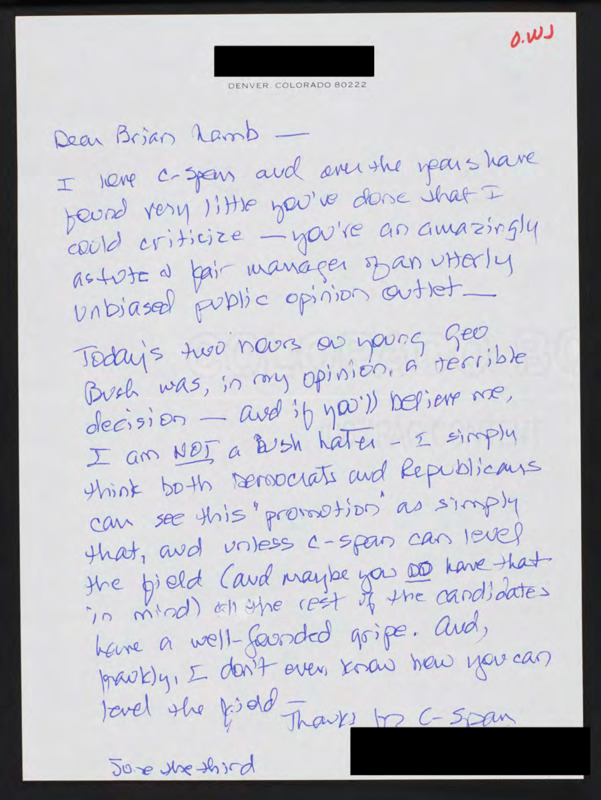 O.W.J
DENVER COLORADO 80222
Dear Brian Lamb —
I love C-Span and over the years have
found very little you've done that I
could criticize — you're an amazingly
astute & fair manager of an utterly
unbiased public opinion outlet —
Today's two hours on young Geo
Bush was, in my opinion, a terrible
decision — and if you'll believe me,
I am NOT a Bush hater - I simply
think both Democrats and Republicans
can see this "promotion" as simply
that, and unless C-Span can level
the field (and maybe you DO have that
in mind) all the rest of the candidates
have a well-founded gripe. And,
frankly, I don't even know how you can
level the field —
Thanks for C-Span
June the third